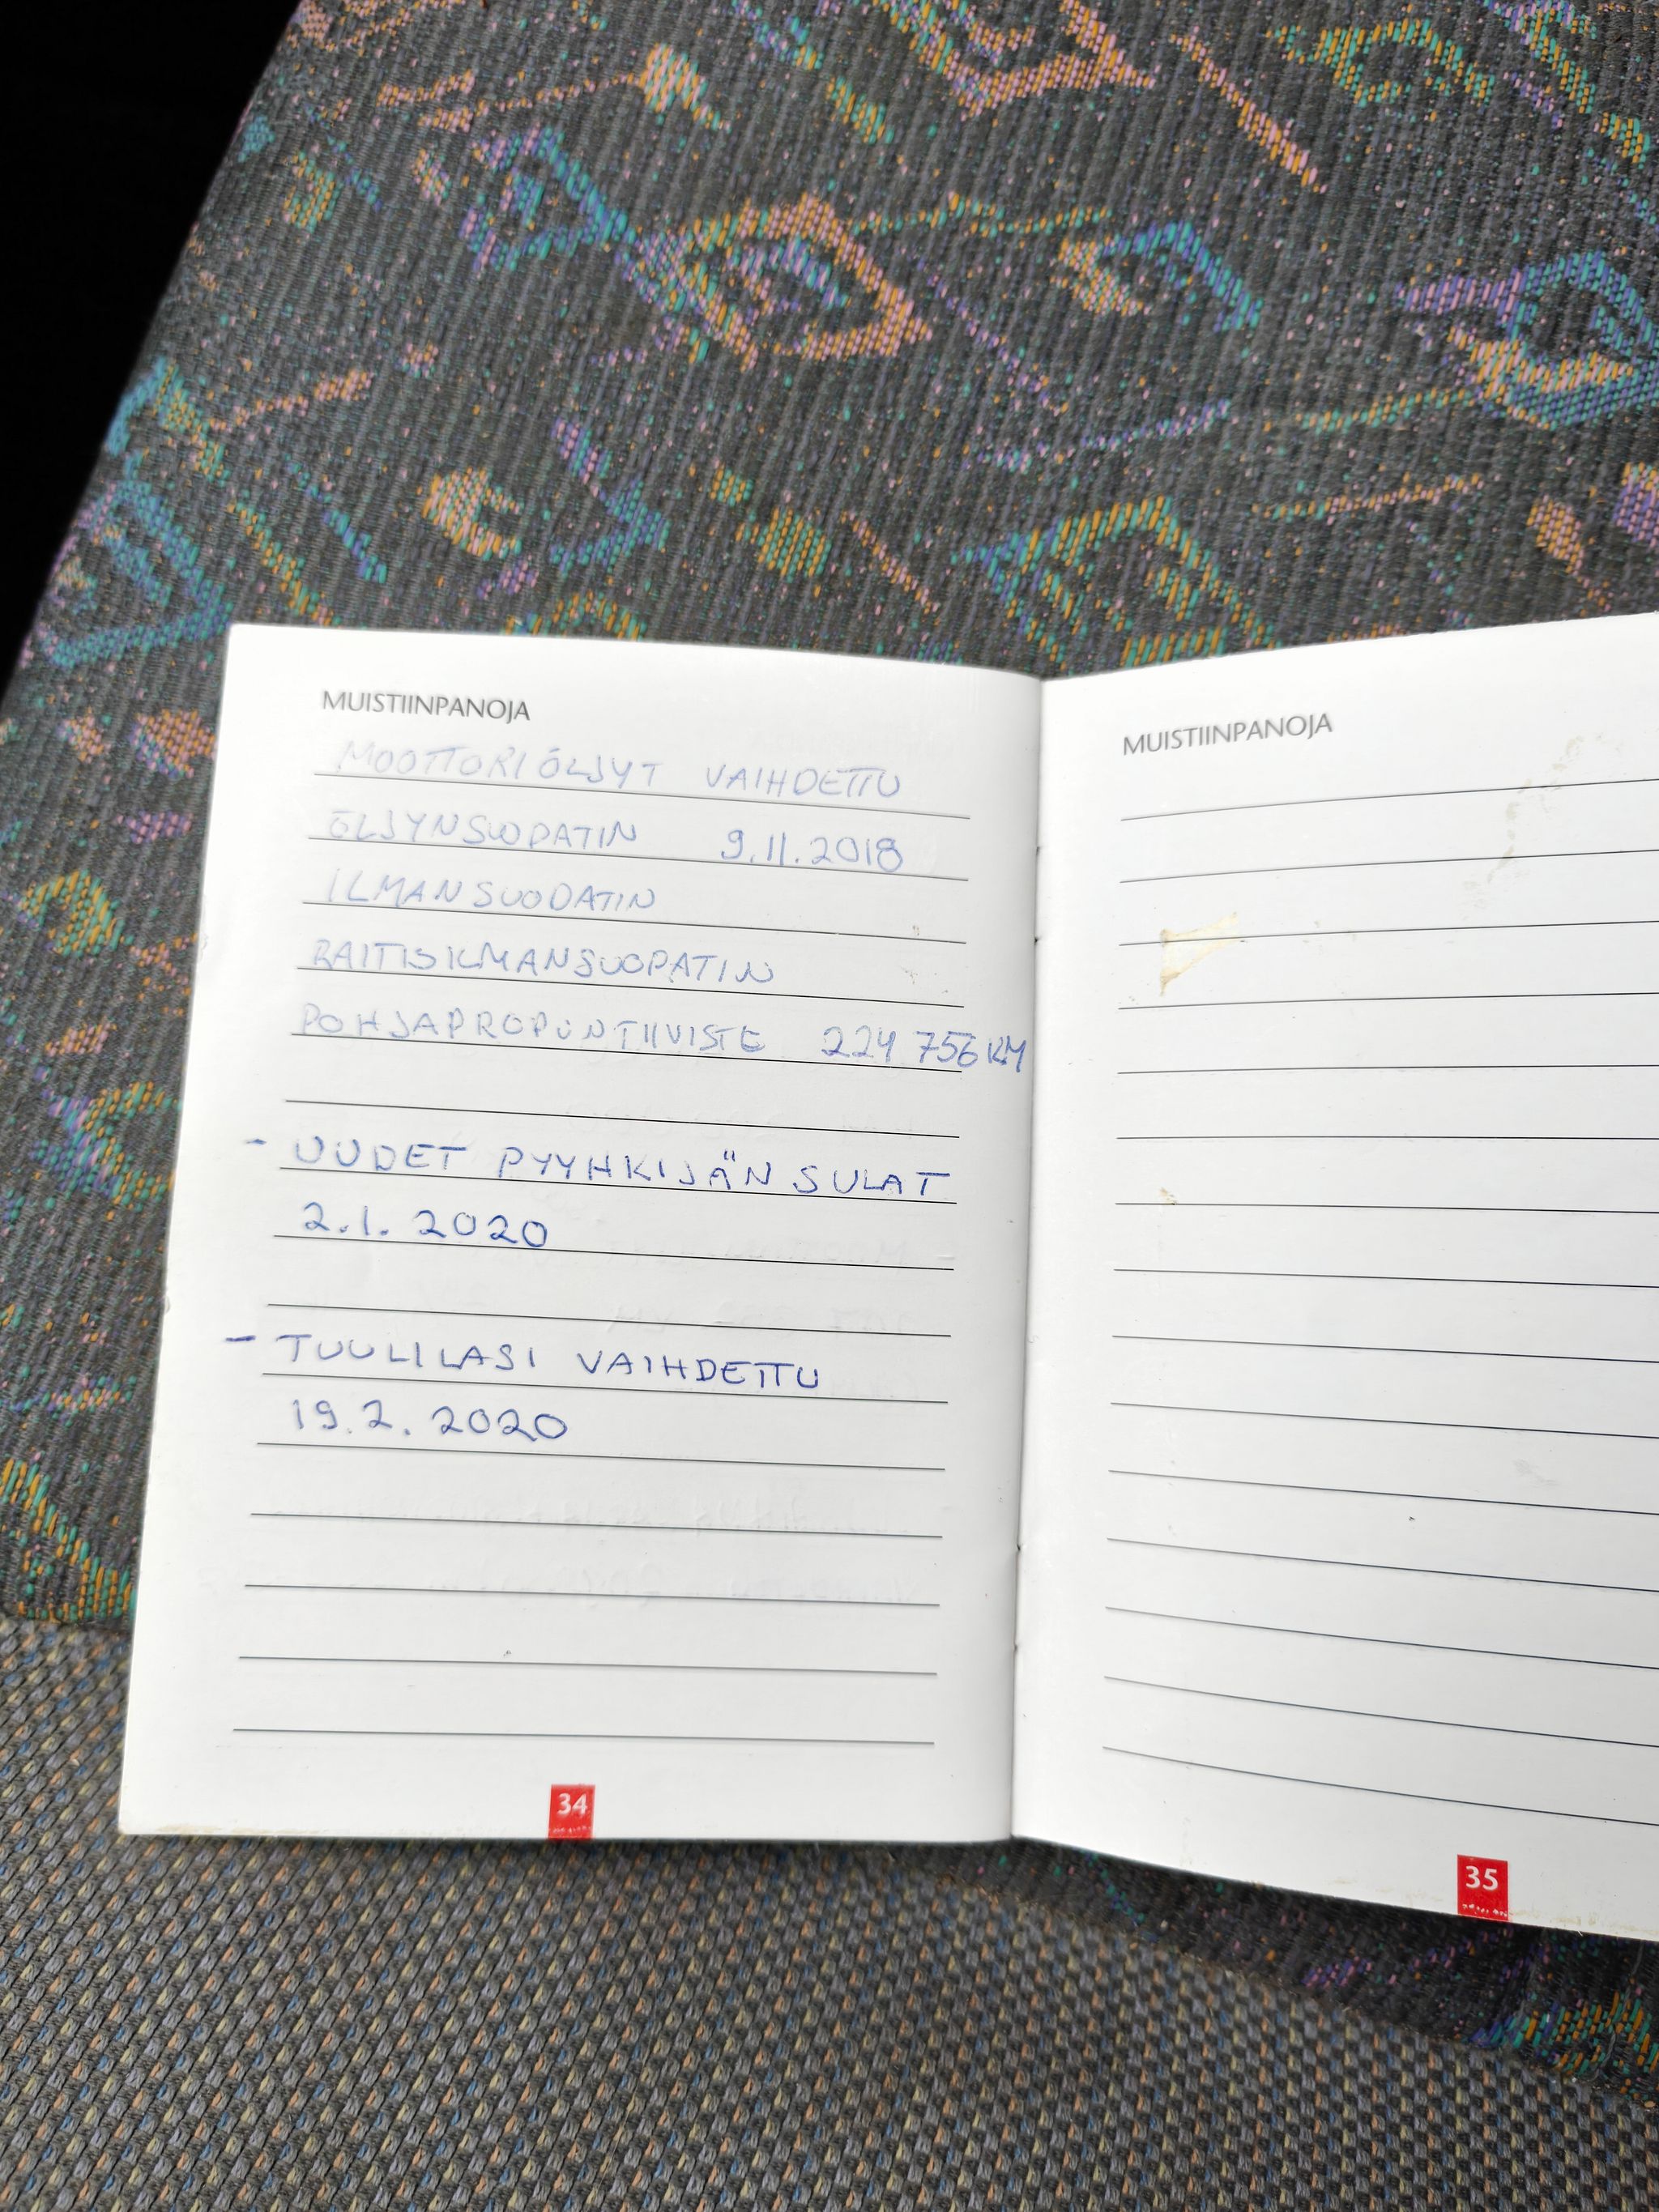 MUISTIINPANOJA
MOOTTORIÖLJYT VAIHDETTU
ÖLJYNSUODATIN 9.11.2018
ILMANSUODATIN
RAITISILMANSUODATIN
POHJAPROPUN TIIVISTE 224 756 KM
- UUDET PYYHKIJÄN SULAT
2.1.2020
- TUULILASI VAIHDETTU
19.2.2020
34
MUISTIINPANOJA
35